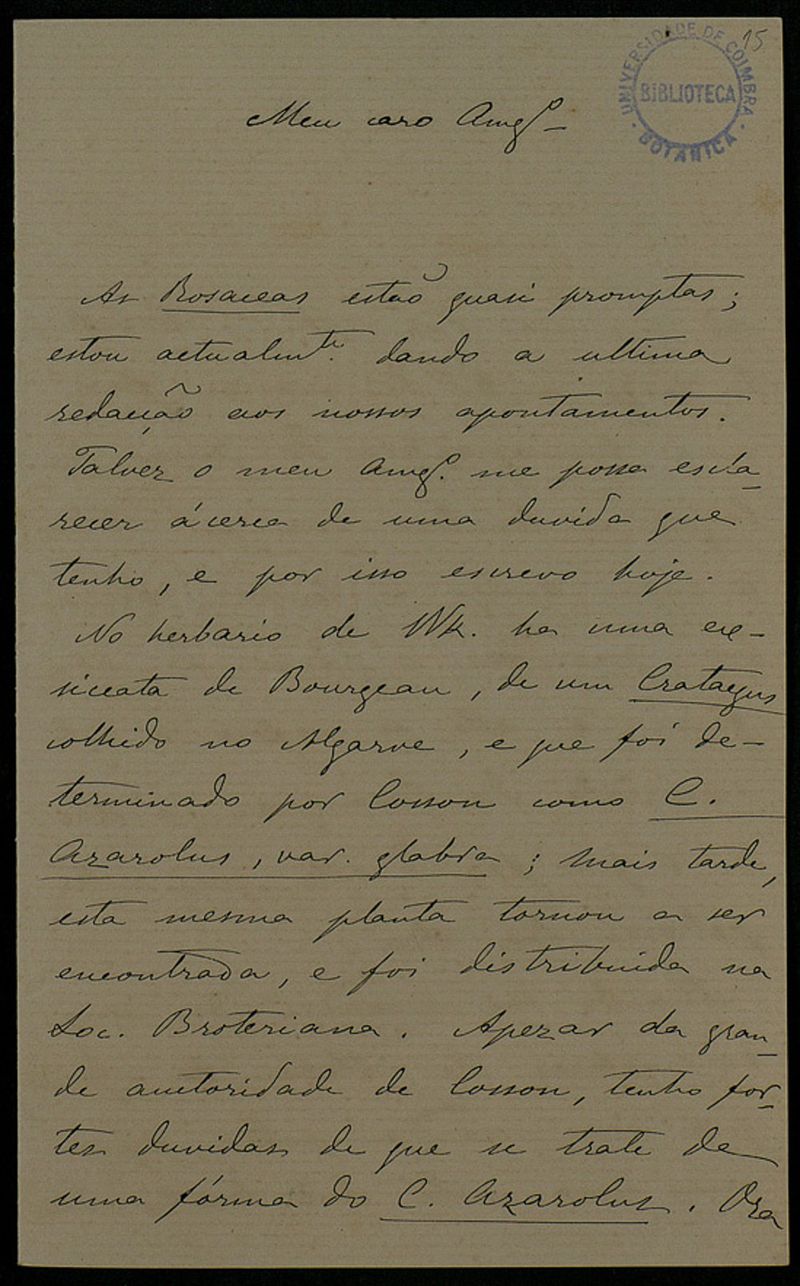 15
UNIVERSIDADE DE COIMBRA
BIBLIOTECA
BOTANICA
Meu caro Amgº
As Rosaceas estão quasi promptas;
estou actualmte. dando a ultima
redacção aos nossos apontamentos.
Talvez o meu Amgº. me possa escla-
recer ácerca de uma duvida que
tenho, e por isso escrevo hoje.
No herbario de Wk. ha uma ex-
siccata de Bourgeau, de um Crataegus
colhido no Algarve, e que foi de-
terminado por Cosson como C.
Azarolus, var. glabra; mais tarde,
esta mesma planta tornou a ser
encontrada, e foi distribuida na
Soc. Broteriana. Apezar da gran-
de auctoridade de Cosson, tenho for-
tes duvidas de que se trate de
uma fórma do C. Azarolus. Ora